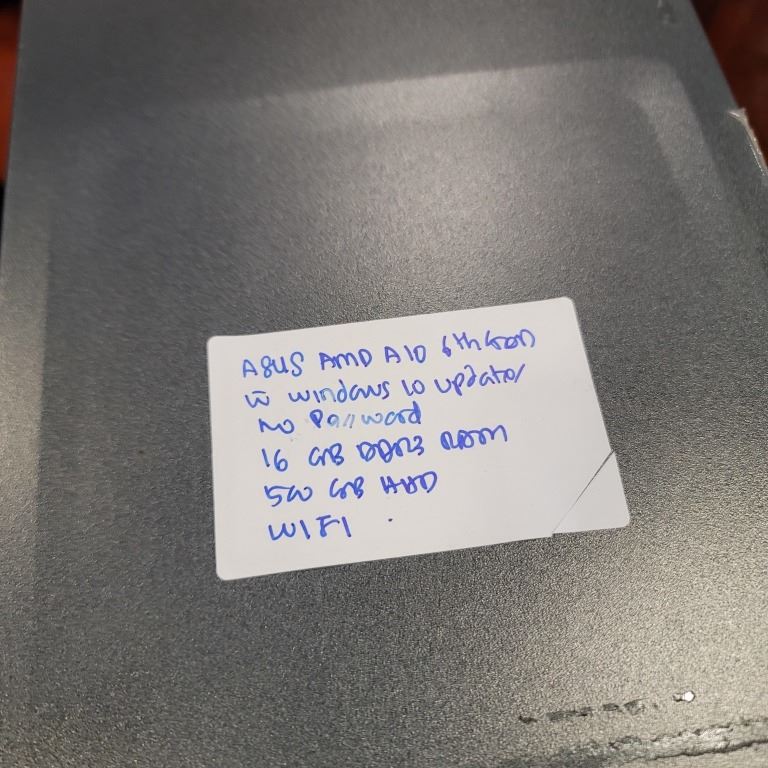 ASUS AMD A10 6th Gen
w̄ windows 10 updates
No Password
16 GB DDR3 RAM
500 GB HDD
WIFI